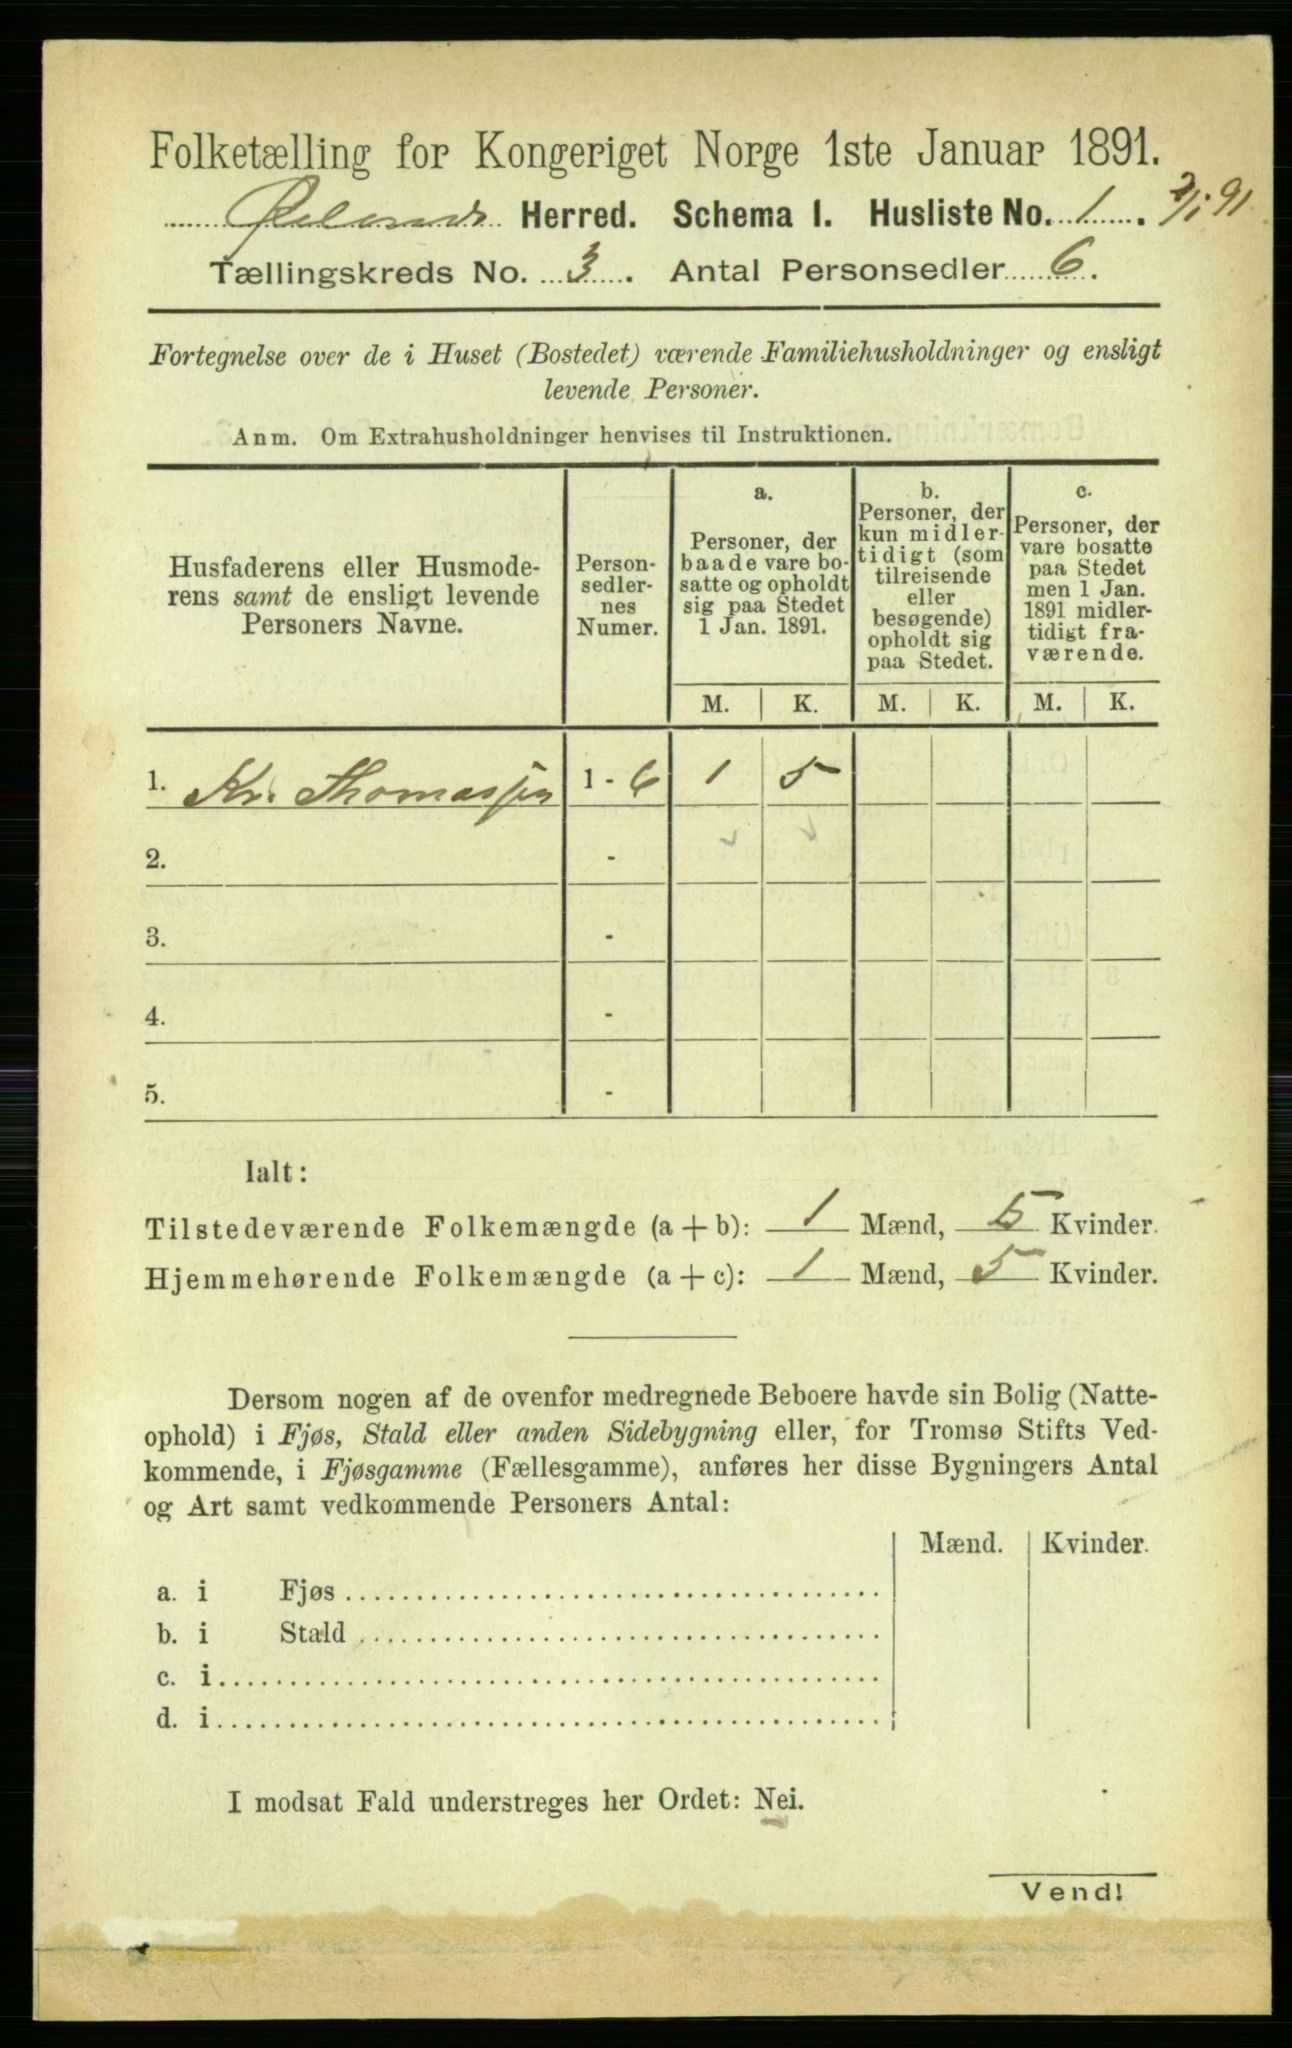 Folketælling for Kongeriget Norge 1ste Januar 1891.
Herred. Schema I. Husliste No. 1. 2/1 91
Tællingskreds No. 3. Antal Personsedler 6.
Fortegnelse over de i Huset (Bostedet) værende Familiehusholdninger og ensligt
levende Personer.
Anm. Om Extrahusholdninger henvises til Instruktionen.
Husfaderens eller Husmode-
rens samt de ensligt levende
Personers Navne.
Person-
sedler-
nes
Numer.
a.
Personer, der
baade vare bo-
satte og opholdt
sig paa Stedet
1 Jan. 1891.
b.
Personer, der
kun midler-
tidigt (som
tilreisende
eller
besøgende)
opholdt sig
paa Stedet.
c.
Personer, der
vare bosatte
paa Stedet
men 1 Jan.
1891 midler-
tidigt fra-
værende.
M. K. M. K. M. K.
1. Kr. Thomassen 1 - 6 1 5
2. -
3. -
4. -
5. -
Ialt:
Tilstedeværende Folkemængde (a + b): 1 Mænd, 5 Kvinder.
Hjemmehørende Folkemængde (a + c): 1 Mænd, 5 Kvinder.
Dersom nogen af de ovenfor medregnede Beboere havde sin Bolig (Natte-
ophold) i Fjøs, Stald eller anden Sidebygning eller, for Tromsø Stifts Ved-
kommende, i Fjøsgamme (Fællesgamme), anføres her disse Bygningers Antal
og Art samt vedkommende Personers Antal:
Mænd. Kvinder.
a. i Fjøs
b. i Stald
c. i
d. i
I modsat Fald understreges her Ordet: Nei.
Vend!